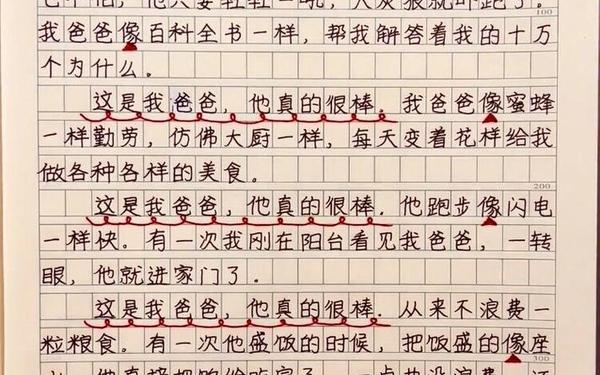 也不怕，他只要轻轻一吼，大灰狼就吓跑了。
100
我爸爸像百科全书一样，帮我解答着我的十万
个为什么。
这是我爸爸，他真的很棒．我爸爸像蜜蜂
一样勤劳，仿佛大厨一样，每天变着花样给我
做各种各样的美食。
200
这是我爸爸，他真的很棒．他跑步像闪电
一样快。有一次我刚在阳台看见我爸爸，一转
眼，他就进家门了。
这是我爸爸，他真的很棒．从来不浪费一
粒粮食。有一次他盛饭的时候，把饭盛的像座
300